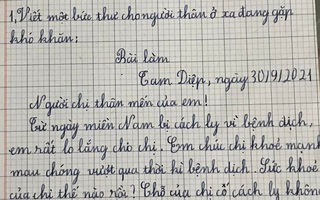 1, Viết một bức thư cho người thân ở xa đang gặp
khó khăn:
Bài làm
Tam Diệp, ngày 30/9/2021
Người chị thân mến của em!
Từ ngày miền Nam bị cách ly vì bệnh dịch,
em rất lo lắng cho chị. Em chúc chị khoẻ mạnh
mau chóng vượt qua thời kì bệnh dịch. Sức khoẻ
của chị thế nào rồi? Chỗ của chị có cách ly không